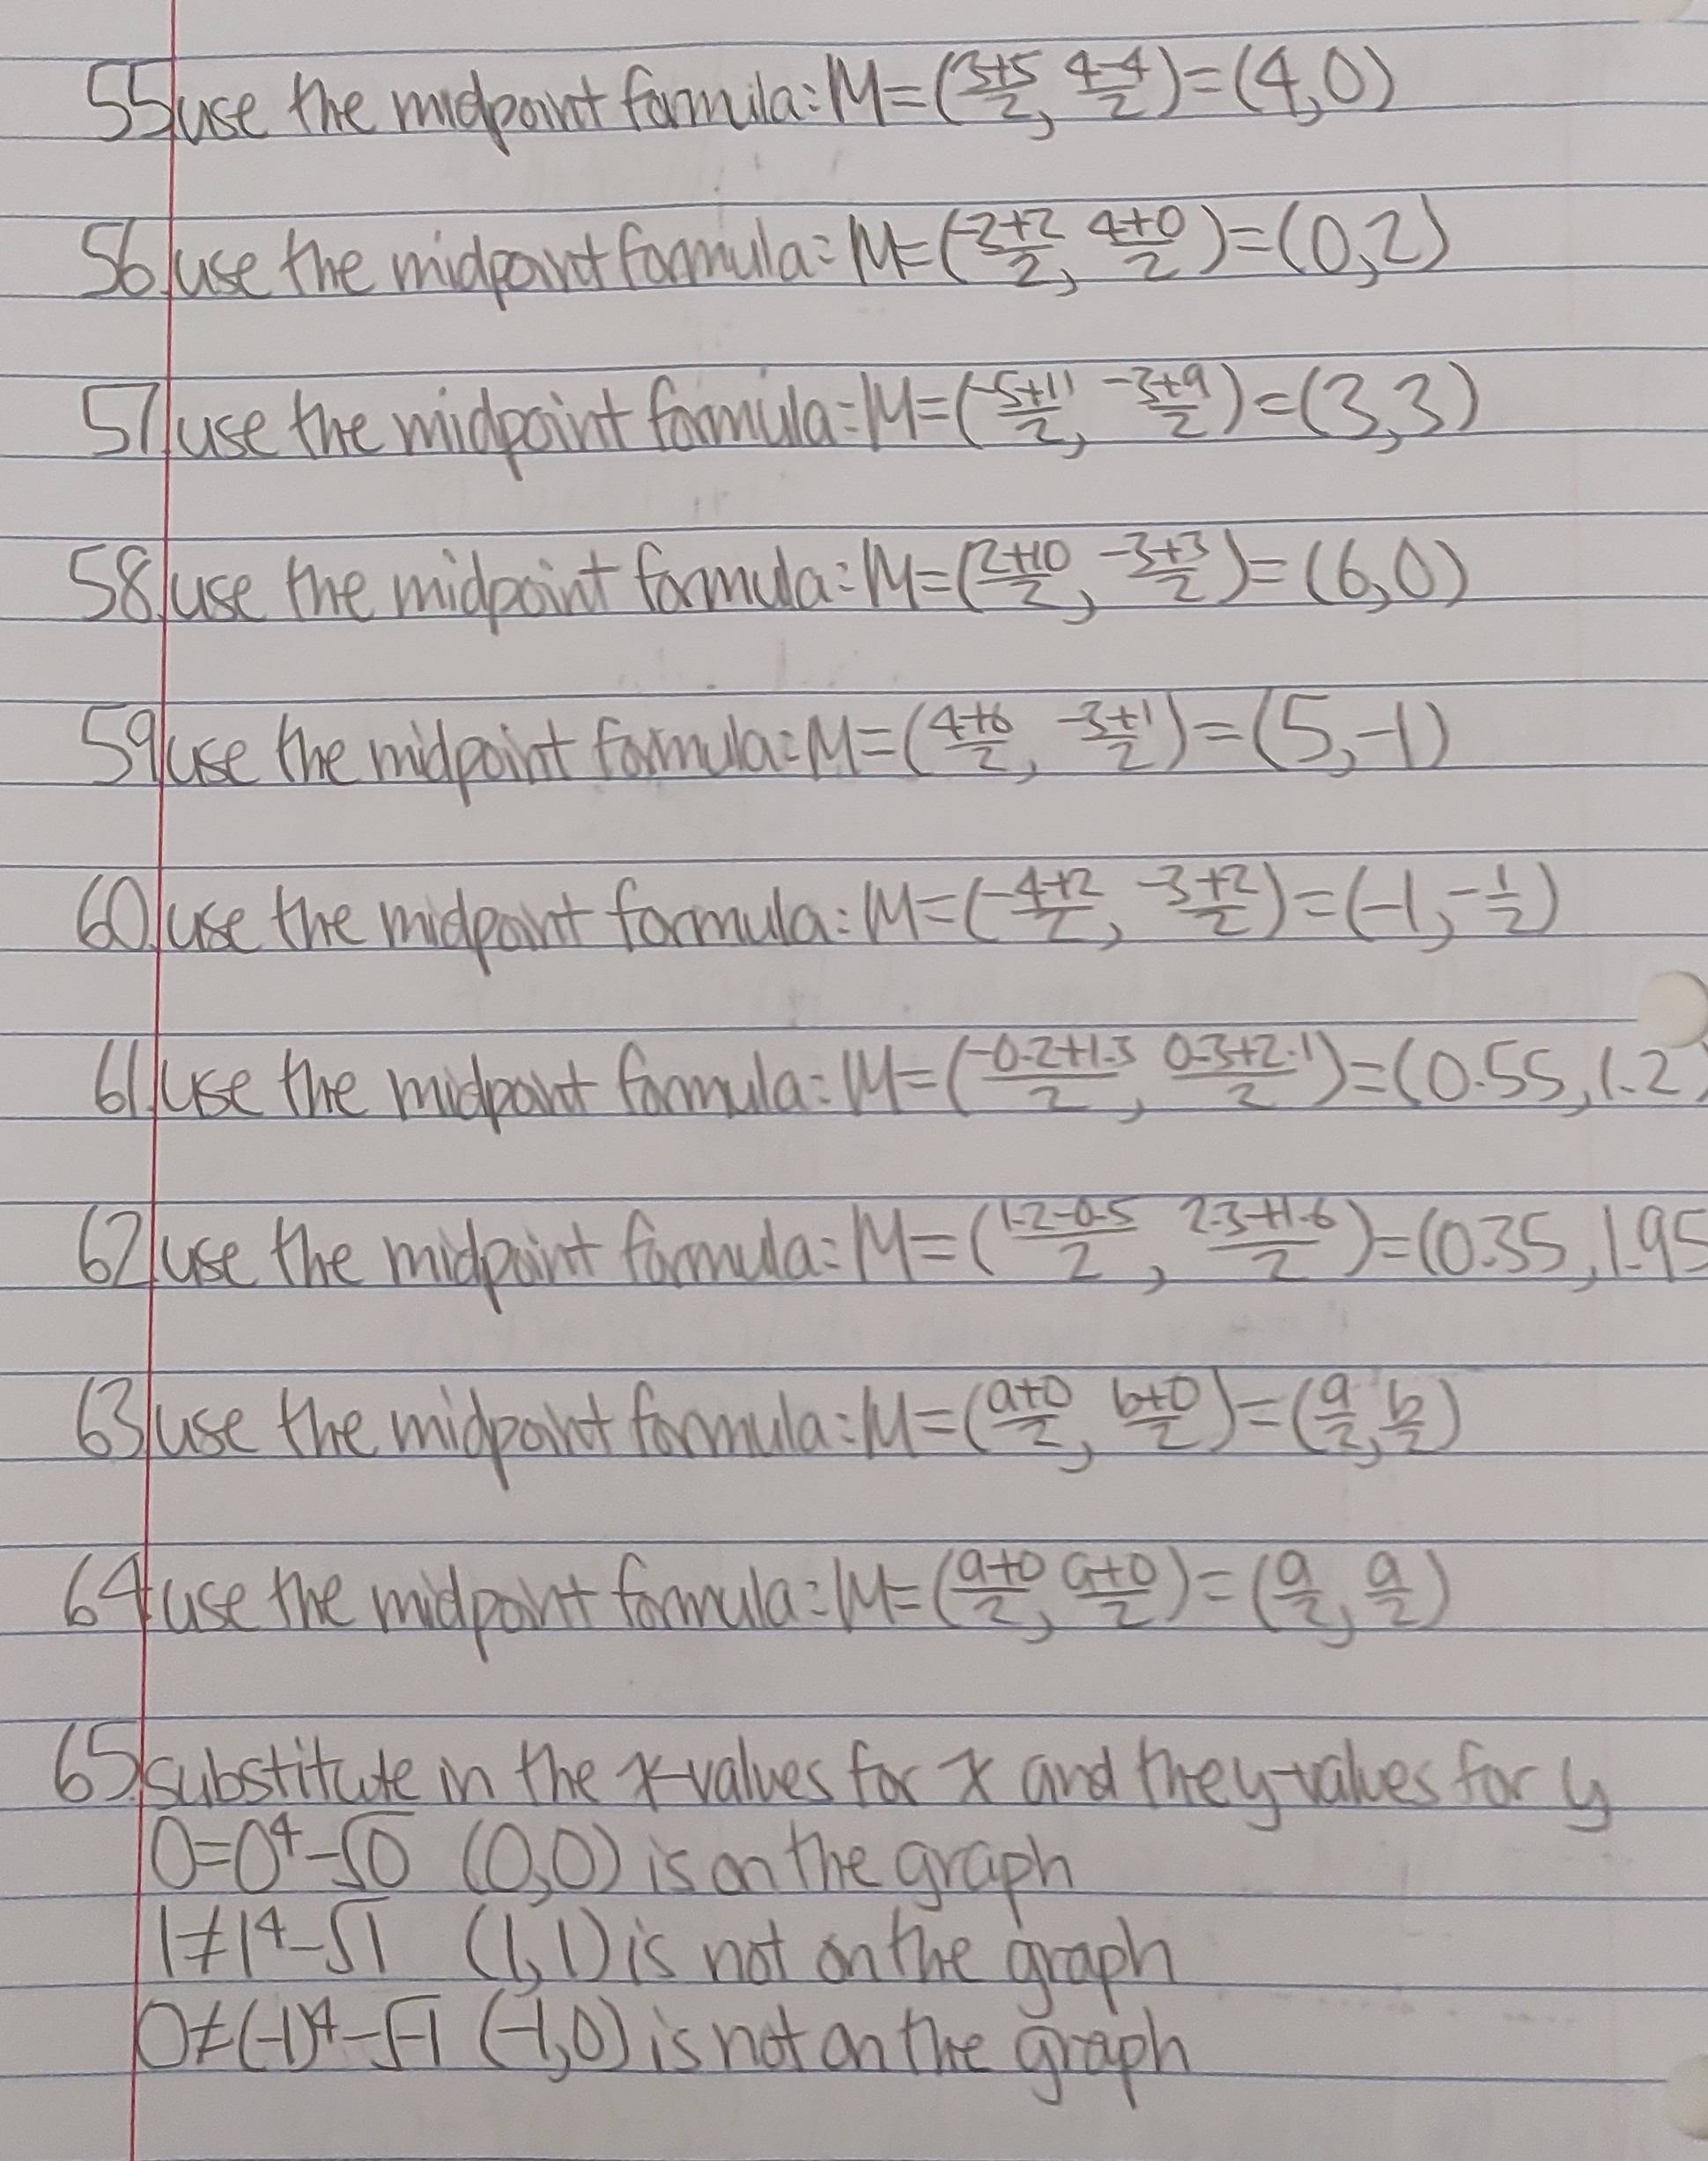 55. use the midpoint formula: M=(3+5/2, 4-4/2)=(4,0)
56. use the midpoint formula: M=(-2+2/2, 4+0/2)=(0,2)
57. use the midpoint formula: M=(-5+11/2, -3+9/2)=(3,3)
58. use the midpoint formula: M=(2+10/2, -3+3/2)=(6,0)
59. use the midpoint formula: M=(4+6/2, -3+1/2)=(5,-1)
60. use the midpoint formula: M=(-4+2/2, -3+2/2)=(-1,-1/2)
61. use the midpoint formula: M=(-0.2+1.3/2, 0.3+2.1/2)=(0.55,1.2)
62. use the midpoint formula: M=(1.2-0.5/2, 2.3+1.6/2)=(0.35,1.95
63. use the midpoint formula: M=(a+0/2, b+0/2)=(a/2,b/2)
64. use the midpoint formula: M=(a+0/2, a+0/2)=(a/2,a/2)
65. substitute in the x-values for x and the y-values for y
0=0⁴-√0 (0,0) is on the graph
1≠1⁴-√1 (1,1) is not on the graph
0≠(-1)⁴-√-1 (-1,0) is not on the graph